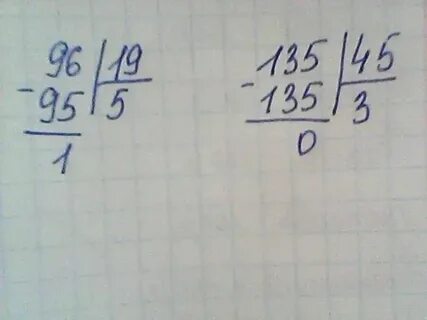 96 19
-95 5
1
-135 45
135 3
0